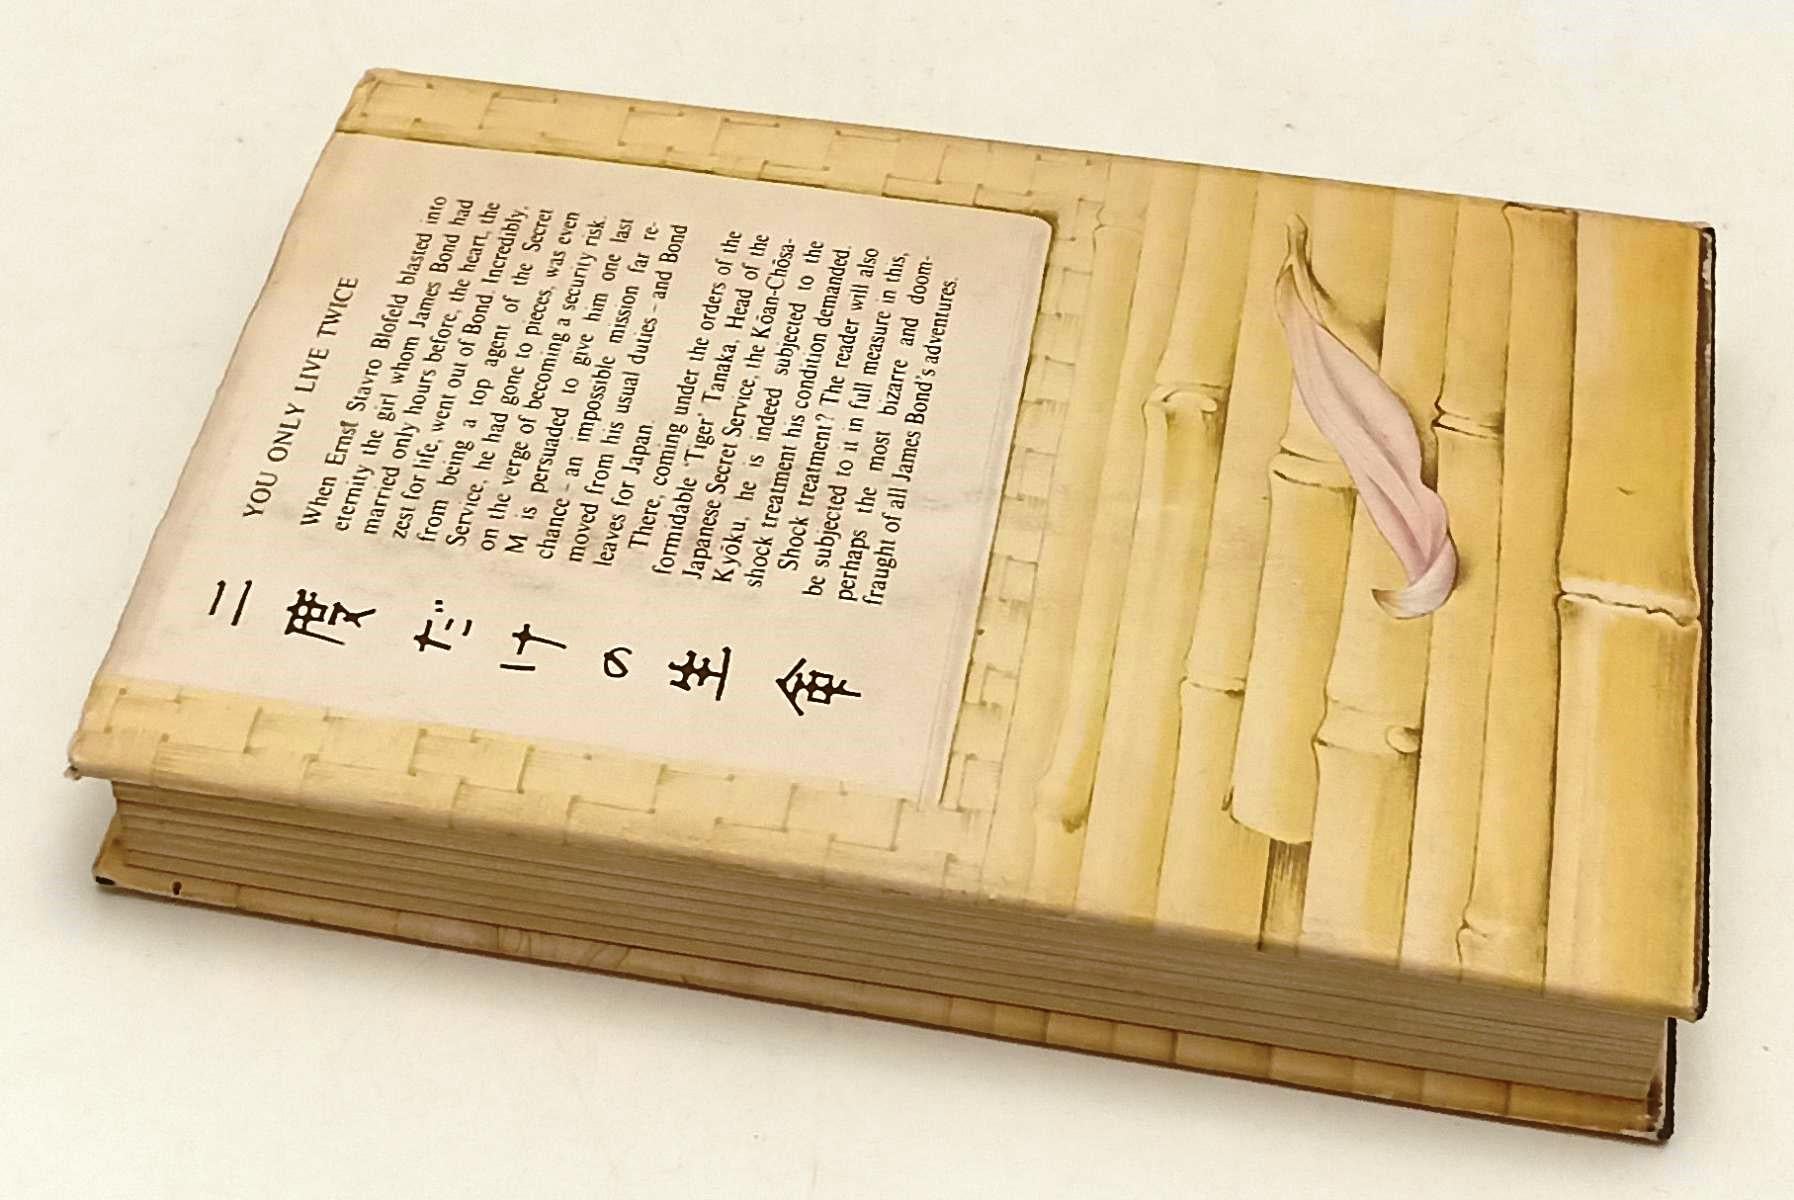 YOU ONLY LIVE TWICE
When Ernst Stavro Blofeld blasted into
eternity the girl whom James Bond had
married only hours before, the heart, the
zest for life, went out of Bond. Incredibly,
from being a top agent of the Secret
Service, he had gone to pieces, was even
on the verge of becoming a security risk.
M is persuaded to give him one last
chance – an impossible mission far re-
moved from his usual duties – and Bond
leaves for Japan.
There, coming under the orders of the
formidable 'Tiger' Tanaka, Head of the
Japanese Secret Service, the Kōan-Chōsa-
Kyōku, he is indeed subjected to the
shock treatment his condition demanded.
Shock treatment? The reader will also
be subjected to it in full measure in this,
perhaps the most bizarre and doom-
fraught of all James Bond's adventures.
二度だけの生命